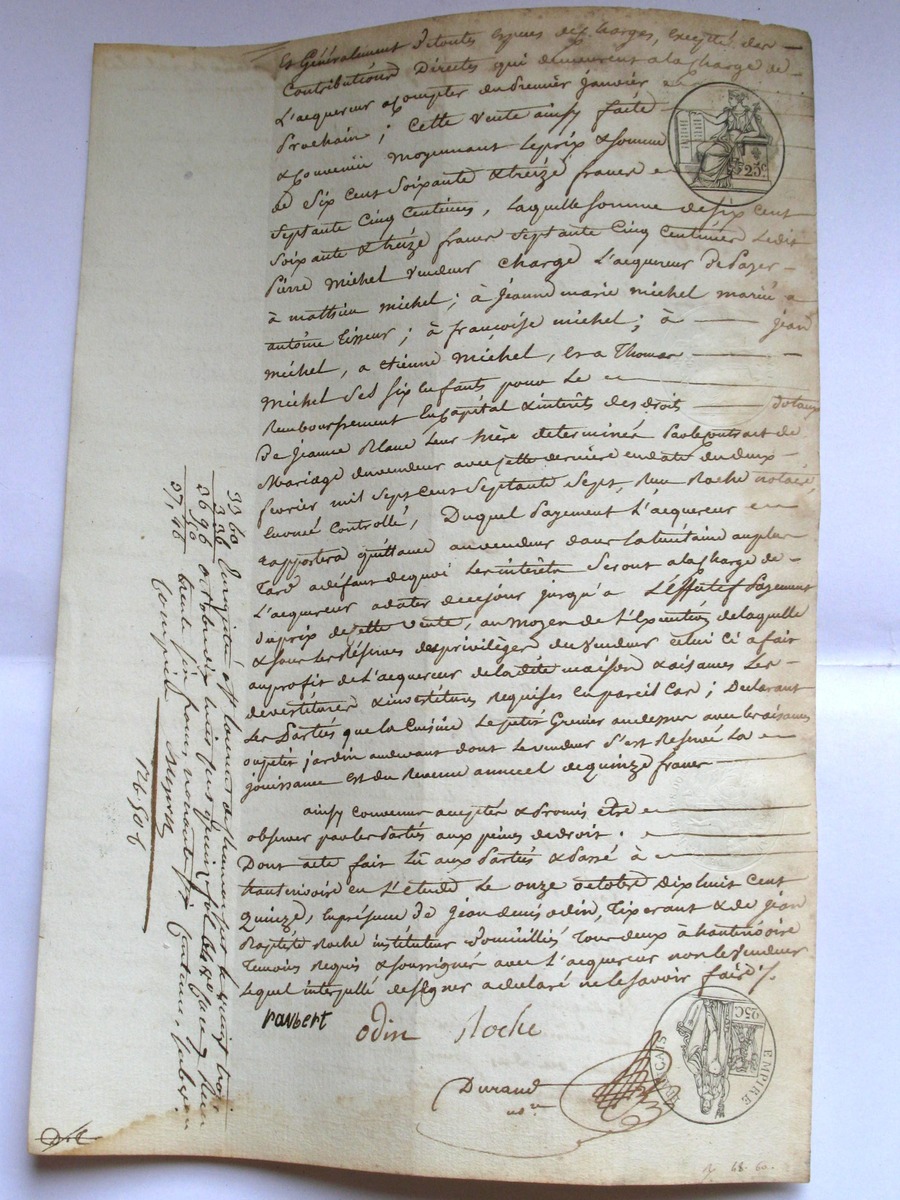 et Généralement de toutes especes de charges, excepté des
Contributions Directes qui demeurent a la charge de
L'acquereur a Compter du premier janvier
Prochain; Cette vente ainsy faite
& Convenüe moyennant le prix & somme
de Six Cent Soixante & treize francs
Septante Cinq Centimes, laquelle somme de six cent
Soixante & treize francs Septante Cinq Centimes Ledit
Pierre Michel vendeur charge L'acquereur de Payer
à mathieu michel; à jeanne marie michel mariée a
antoine Tisseur; à françoise michel; à jean
michel, a etienne Michel, et a Thomas
Michel ses six enfants pour le
Remboursement en Capital & interêts des droits dotaux
De jeanne Blanc Leur mère determinés par le contrat de
Mariage du vendeur avec cette derniere en date du deux
fevrier mil sept cent septante sept, Reçu Roche notaire,
Controllé, Duquel Payement L'acquereur
rapportera quittance au vendeur dans la huitaine au plus
Tard a défaut de quoi Les interêts seront a la charge de
L'acquereur a dater de ce jour jusqu'a L'effectif Payement
du prix de cette vente, au moyen de L'Exécution de laquelle
& sous les Réserves des privilèges du vendeur celui ci a fait
au profit de L'acquereur de la dite maison & aisances Les
devestitures & investitures requises en pareil Cas; Declarant
Les Parties que la Cuisine Le petit Grenier au dessus avec les aisances
ou petit jardin au devant dont le vendeur s'est Reservé La
jouissance est du Revenu annuel de quinze francs
ainsy convenu accepté & Promis être
observer par les Parties aux peines de droit.
Dont acte fait Lû aux Parties & Passé à
hauterivoire en L'étude Le onze octobre dix huit cent
Quinze, en présence de Jean denis odin, Tixerant & de jean
Baptiste Roche instituteur Domiciliés Tous deux à hauterivoire
Temoins Requis & soussignés avec L'acquereur non le vendeur
Lequel interpellé de signer a declaré ne le savoir faire
raubert odin Roche
Durand
no.re
25C.
EMPIRE FRANÇAIS
25C
33 60
3 36
36 96
50
37,46
Enregistré
trente sept francs quarante six Centimes
Compris